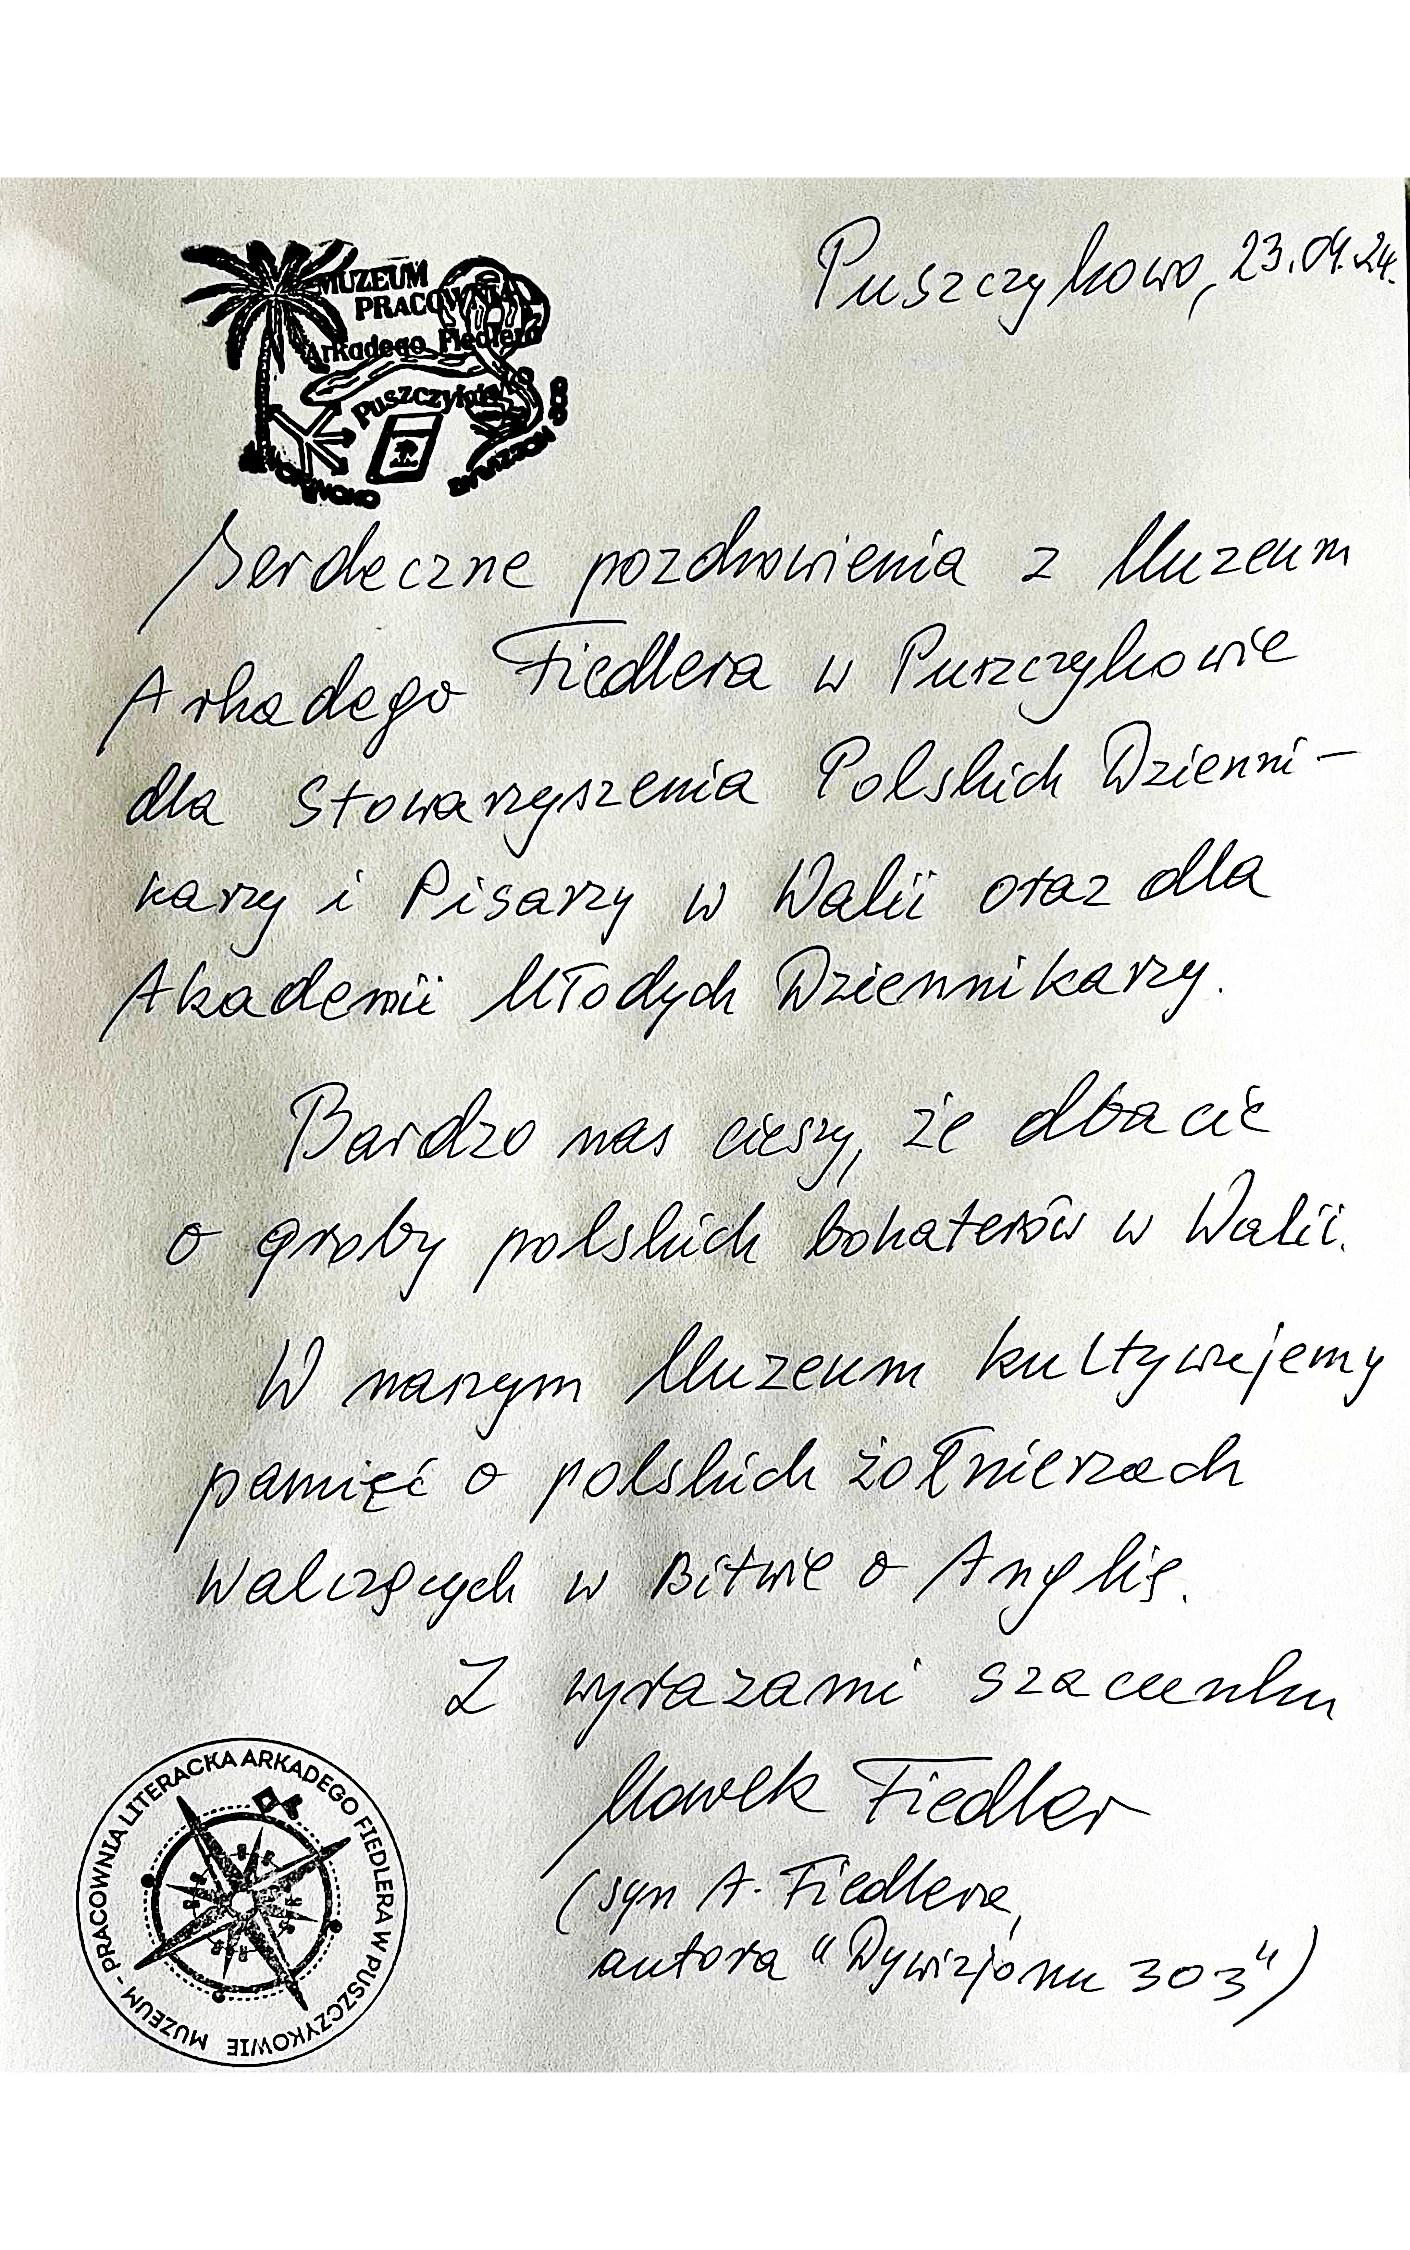 Puszczykowo, 23.04.24.
MUZEUM
PRACOWNIA
Arkadego Fiedlera
Puszczykowo
DYWIZJON 303
Serdeczne pozdrowienia z Muzeum
Arkadego Fiedlera w Puszczykowie
dla Stowarzyszenia Polskich Dzienni-
karzy i Pisarzy w Walii oraz dla
Akademii Młodych Dziennikarzy.
Bardzo nas cieszy, że dbacie
o groby polskich bohaterów w Walii.
W naszym Muzeum kultywujemy
pamięć o polskich żołnierzach
Walczących w Bitwie o Anglię.
Z wyrazami szacunku
Marek Fiedler
(syn A. Fiedlera,
autora "Dywizjonu 303")
MUZEUM - PRACOWNIA LITERACKA ARKADEGO FIEDLERA W PUSZCZYKOWIE